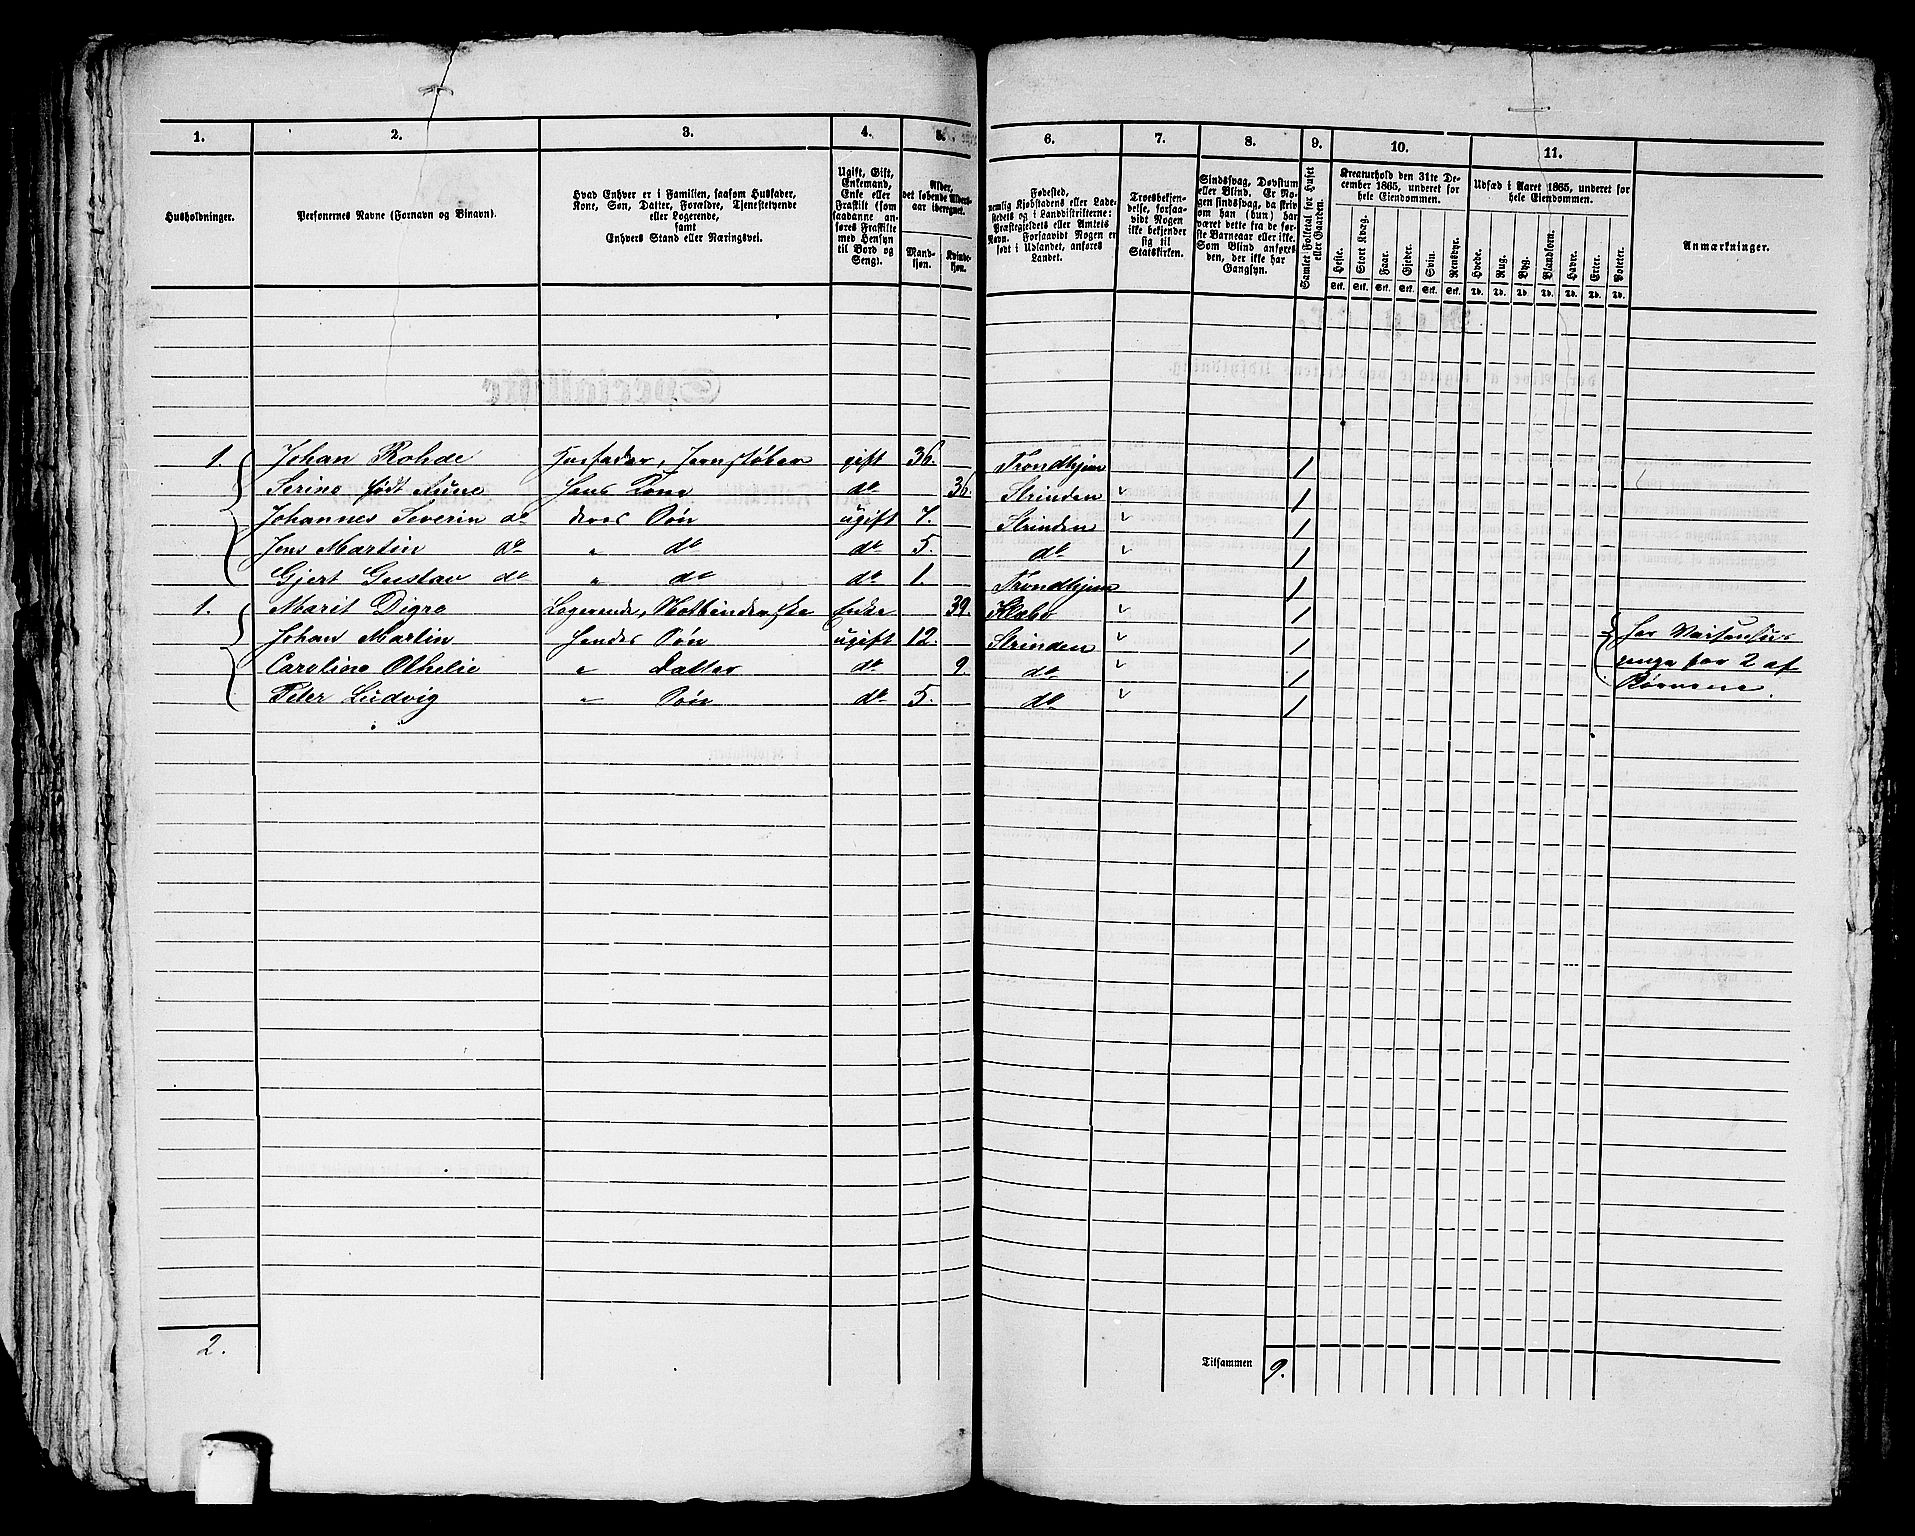 1. 2. 3. 4. 5. 6. 7. 8. 9. 10. 11.
Husholdninger.
Personernes Navne (Fornavn og Binavn).
Hvad Enhver er i Familien, saasom Husfader,
Kone, Søn, Datter, Forældre, Tjenestetyende
eller Logerende,
samt
Enhvers Stand eller Næringsvei.
Ugift, Gift,
Enkemand,
Enke eller
Fraskilt (som
saadanne an-
føres Fraskilte
med Hensyn
til Bord og
Seng).
Alder,
det løbende Alders-
aar iberegnet.
Mand-
kjøn.
Kvinde-
kjøn.
Fødested,
nemlig Kjøbstadens eller Lade-
stedets og i Landdistrikterne:
Præstegjeldets eller Amtets
Navn. Forsaavidt Nogen er
født i Udlandet, anføres
Landet.
Troesbekjen-
delse, forsaa-
vidt Nogen
ikke bekjender
sig til
Statskirken.
Sindssvag, Døvstum
eller Blind. Er No-
gen sindssvag, da skriv
om han (hun) har
været dette fra de før-
ste Barneaar eller ikke.
Som Blind anføres
den, der ikke har
Gangsyn.
Samlet Folketal for Huset
eller Gaarden.
Kreaturhold den 31te De-
cember 1865, underet for
hele Eiendommen.
Heste. Stort Kvæg. Faar. Gjeder. Svin. Rensdyr.
Stk. Stk. Stk. Stk. Stk. Stk.
Udsæd i Aaret 1865, underet for
hele Eiendommen.
Hvede. Rug. Byg. Blandkorn. Havre. Erter. Poteter.
Td. Td. Td. Td. Td. Td. Td.
Anmærkninger.
1. Johan Rohde Husfader, Jernstøber gift 36. Trondhjem 1
Serine født Aune Hans Kone do 36. Strinden 1
Johannes Severin do deres Søn ugift 7. Strinden 1
Jens Martin do " do do 5. do 1
Gjert Gustav do " do do 1. Trondhjem 1
1. Marit Digre Logerende, Notbinderske Enke 39. Klæbo 1
Johan Martin Hendes Søn ugift 12. Strinden 1 har Vaisenhus
Caroline Othelie " Datter do 9. do 1 penge for 2 af
Peter Ludvig " Søn do 5. do 1 Børnene.
2.
Tilsammen 9.